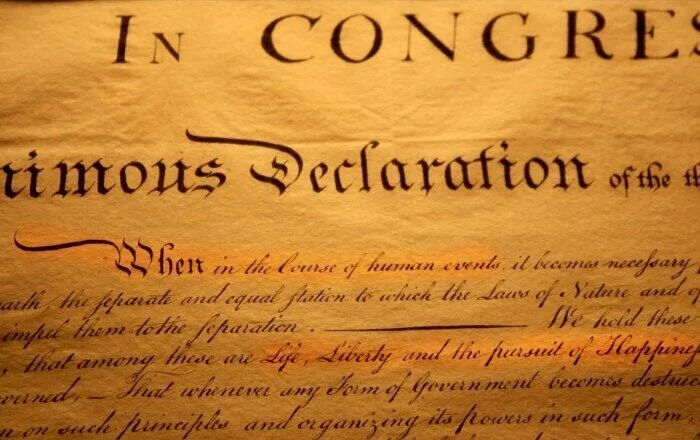 In CONGRES
nimous Declaration of the th
When in the Course of human events, it becomes necessary
earth, the separate and equal station to which the Laws of Nature and of
impel them to the separation. — We hold these
, that among these are Life, Liberty and the pursuit of Happines
verned, — That whenever any Form of Government becomes destruc
n on such principles and organizing its powers in such form,